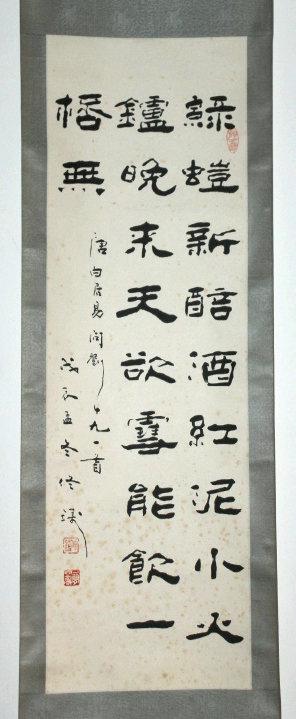 綠螘新醅酒紅泥小火
鑪晚来天欲雪能飲一
桮無
唐白居易問劉十九一首
戊辰孟冬